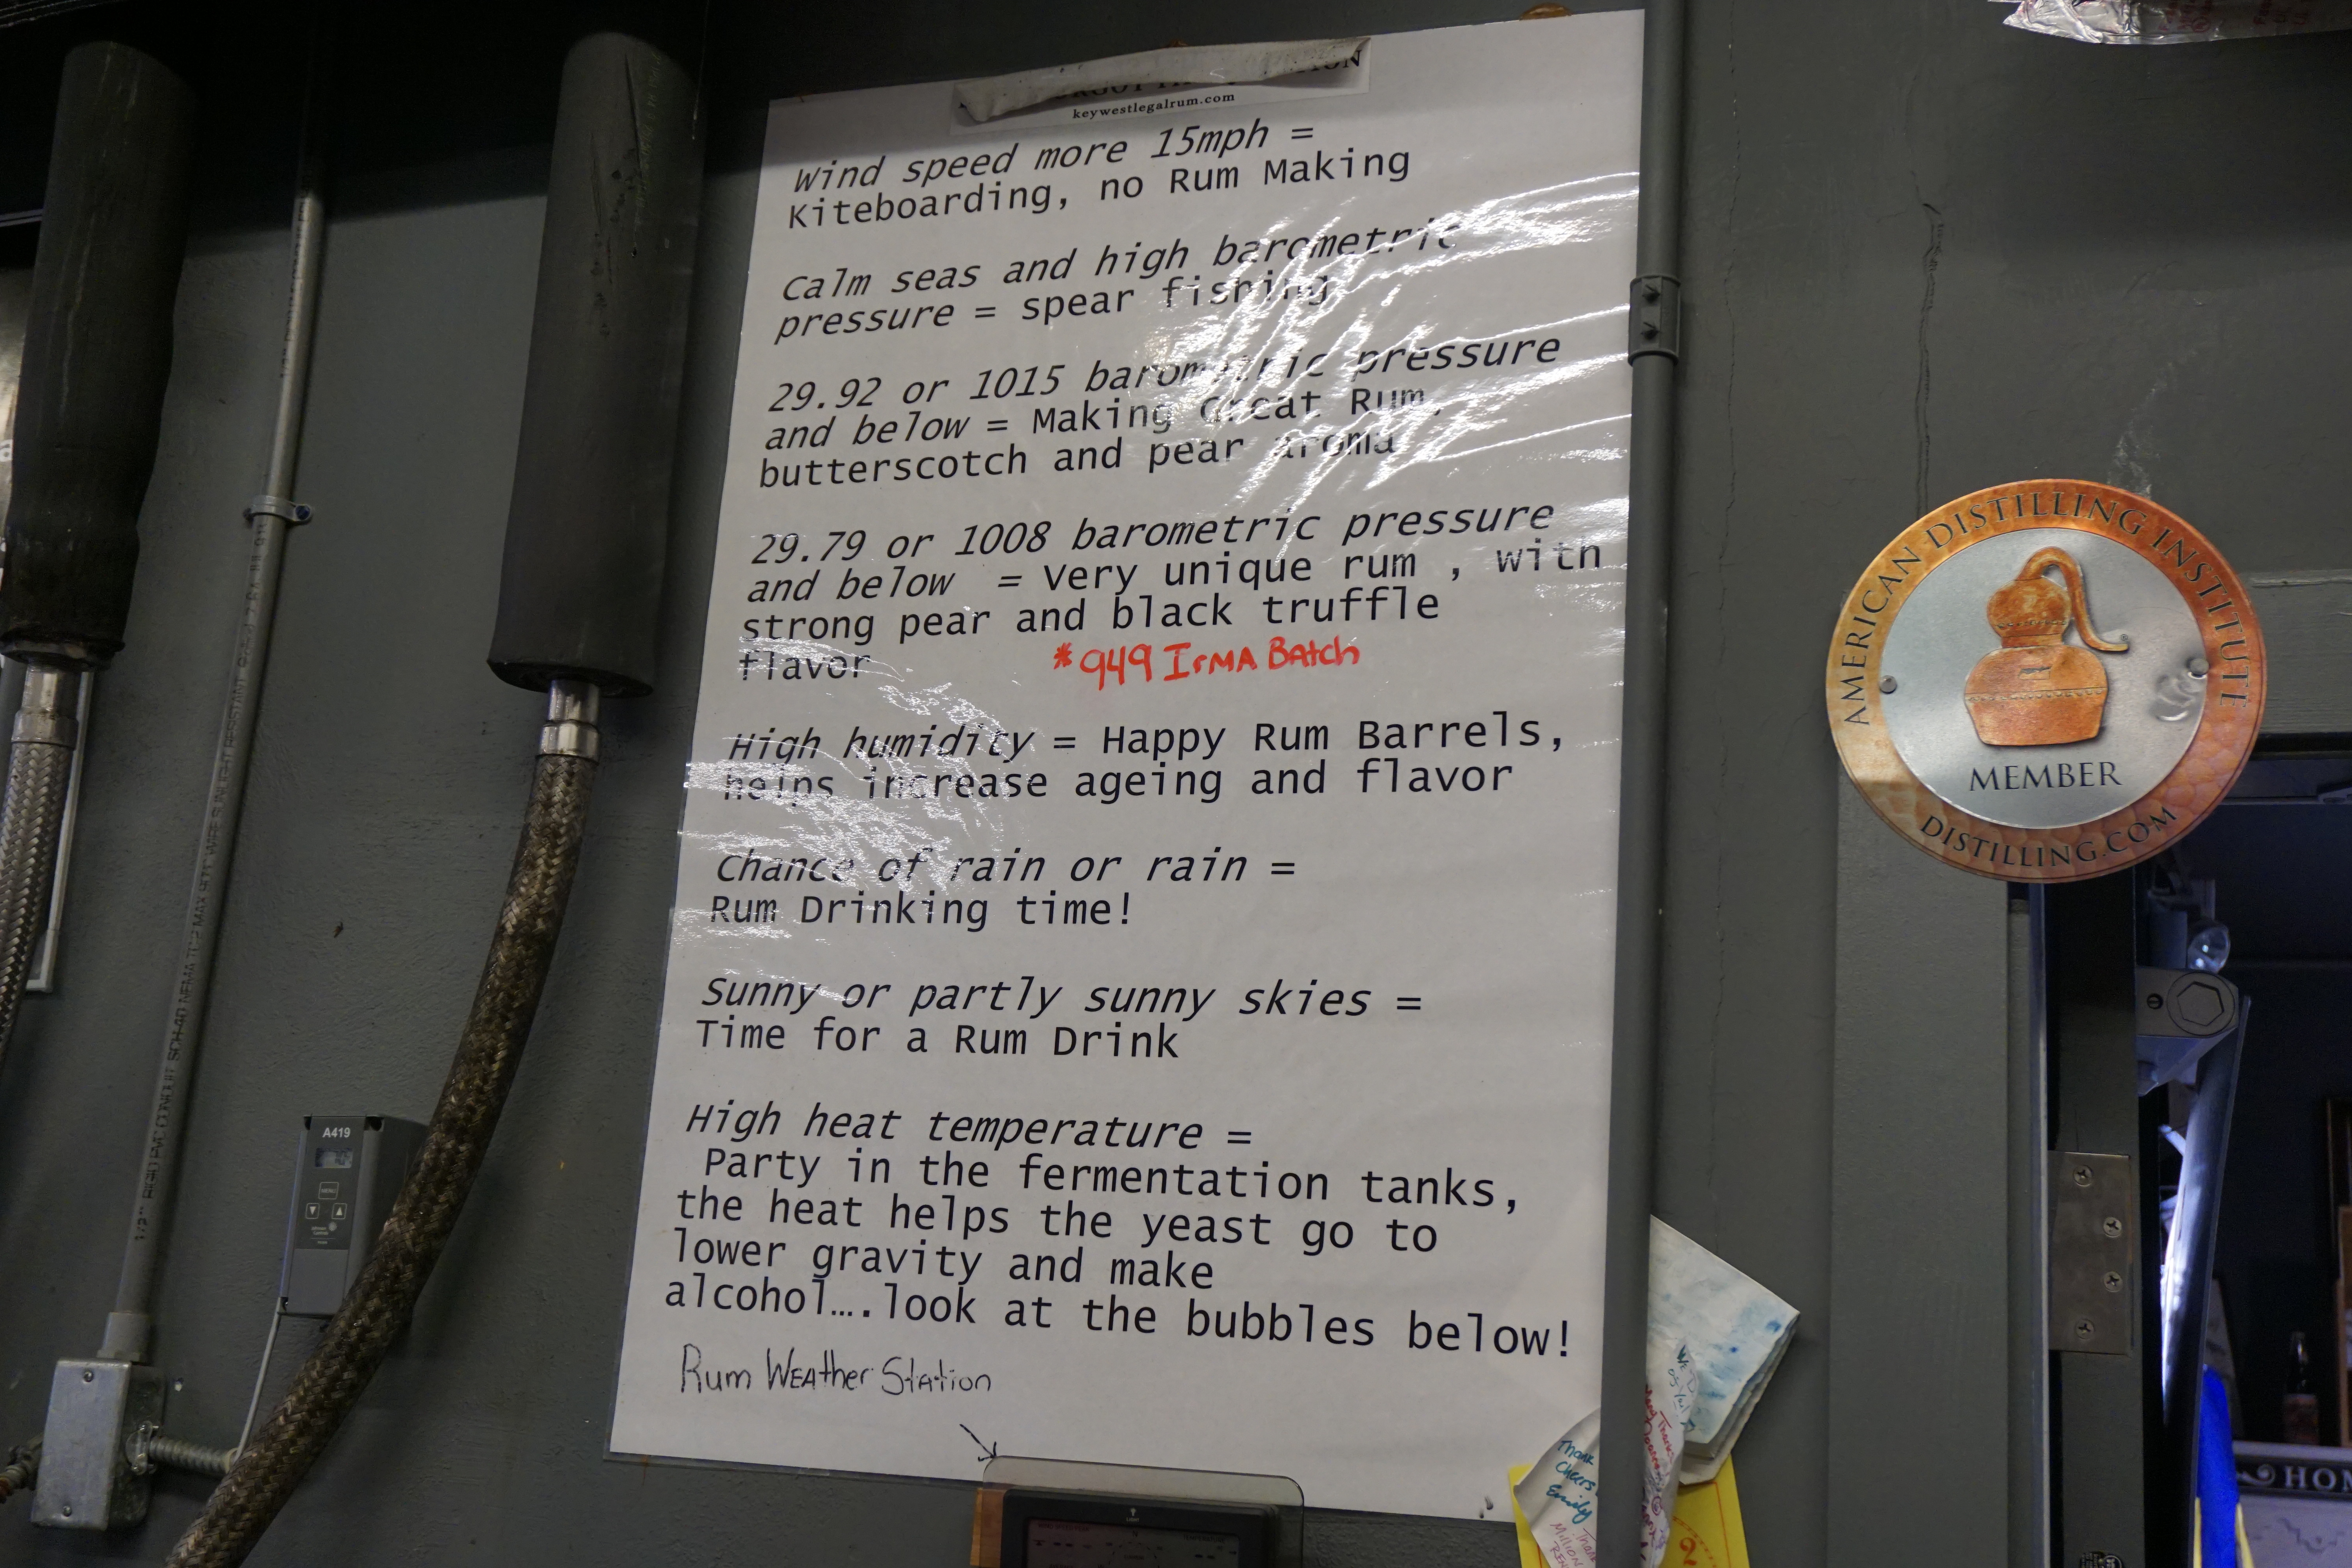 keywestlegalrum.com
Wind speed more 15mph =
Kiteboarding, no Rum Making
Calm seas and high barometric
pressure = spear fishing
29.92 or 1015 barometric pressure
and below = Making Great Rum,
butterscotch and pear aroma
29.79 or 1008 barometric pressure
and below = Very unique rum , with
strong pear and black truffle
flavor
*949 IrMA BAtch
High humidity = Happy Rum Barrels,
helps increase ageing and flavor
Chance of rain or rain =
Rum Drinking time!
Sunny or partly sunny skies =
Time for a Rum Drink
High heat temperature =
Party in the fermentation tanks,
the heat helps the yeast go to
lower gravity and make
alcohol….look at the bubbles below!
Rum WEAther StAtion
AMERICAN DISTILLING INSTITUTE
MEMBER
DISTILLING.COM
A419
MENU
LIGHT
Thank
Cheers
Emily